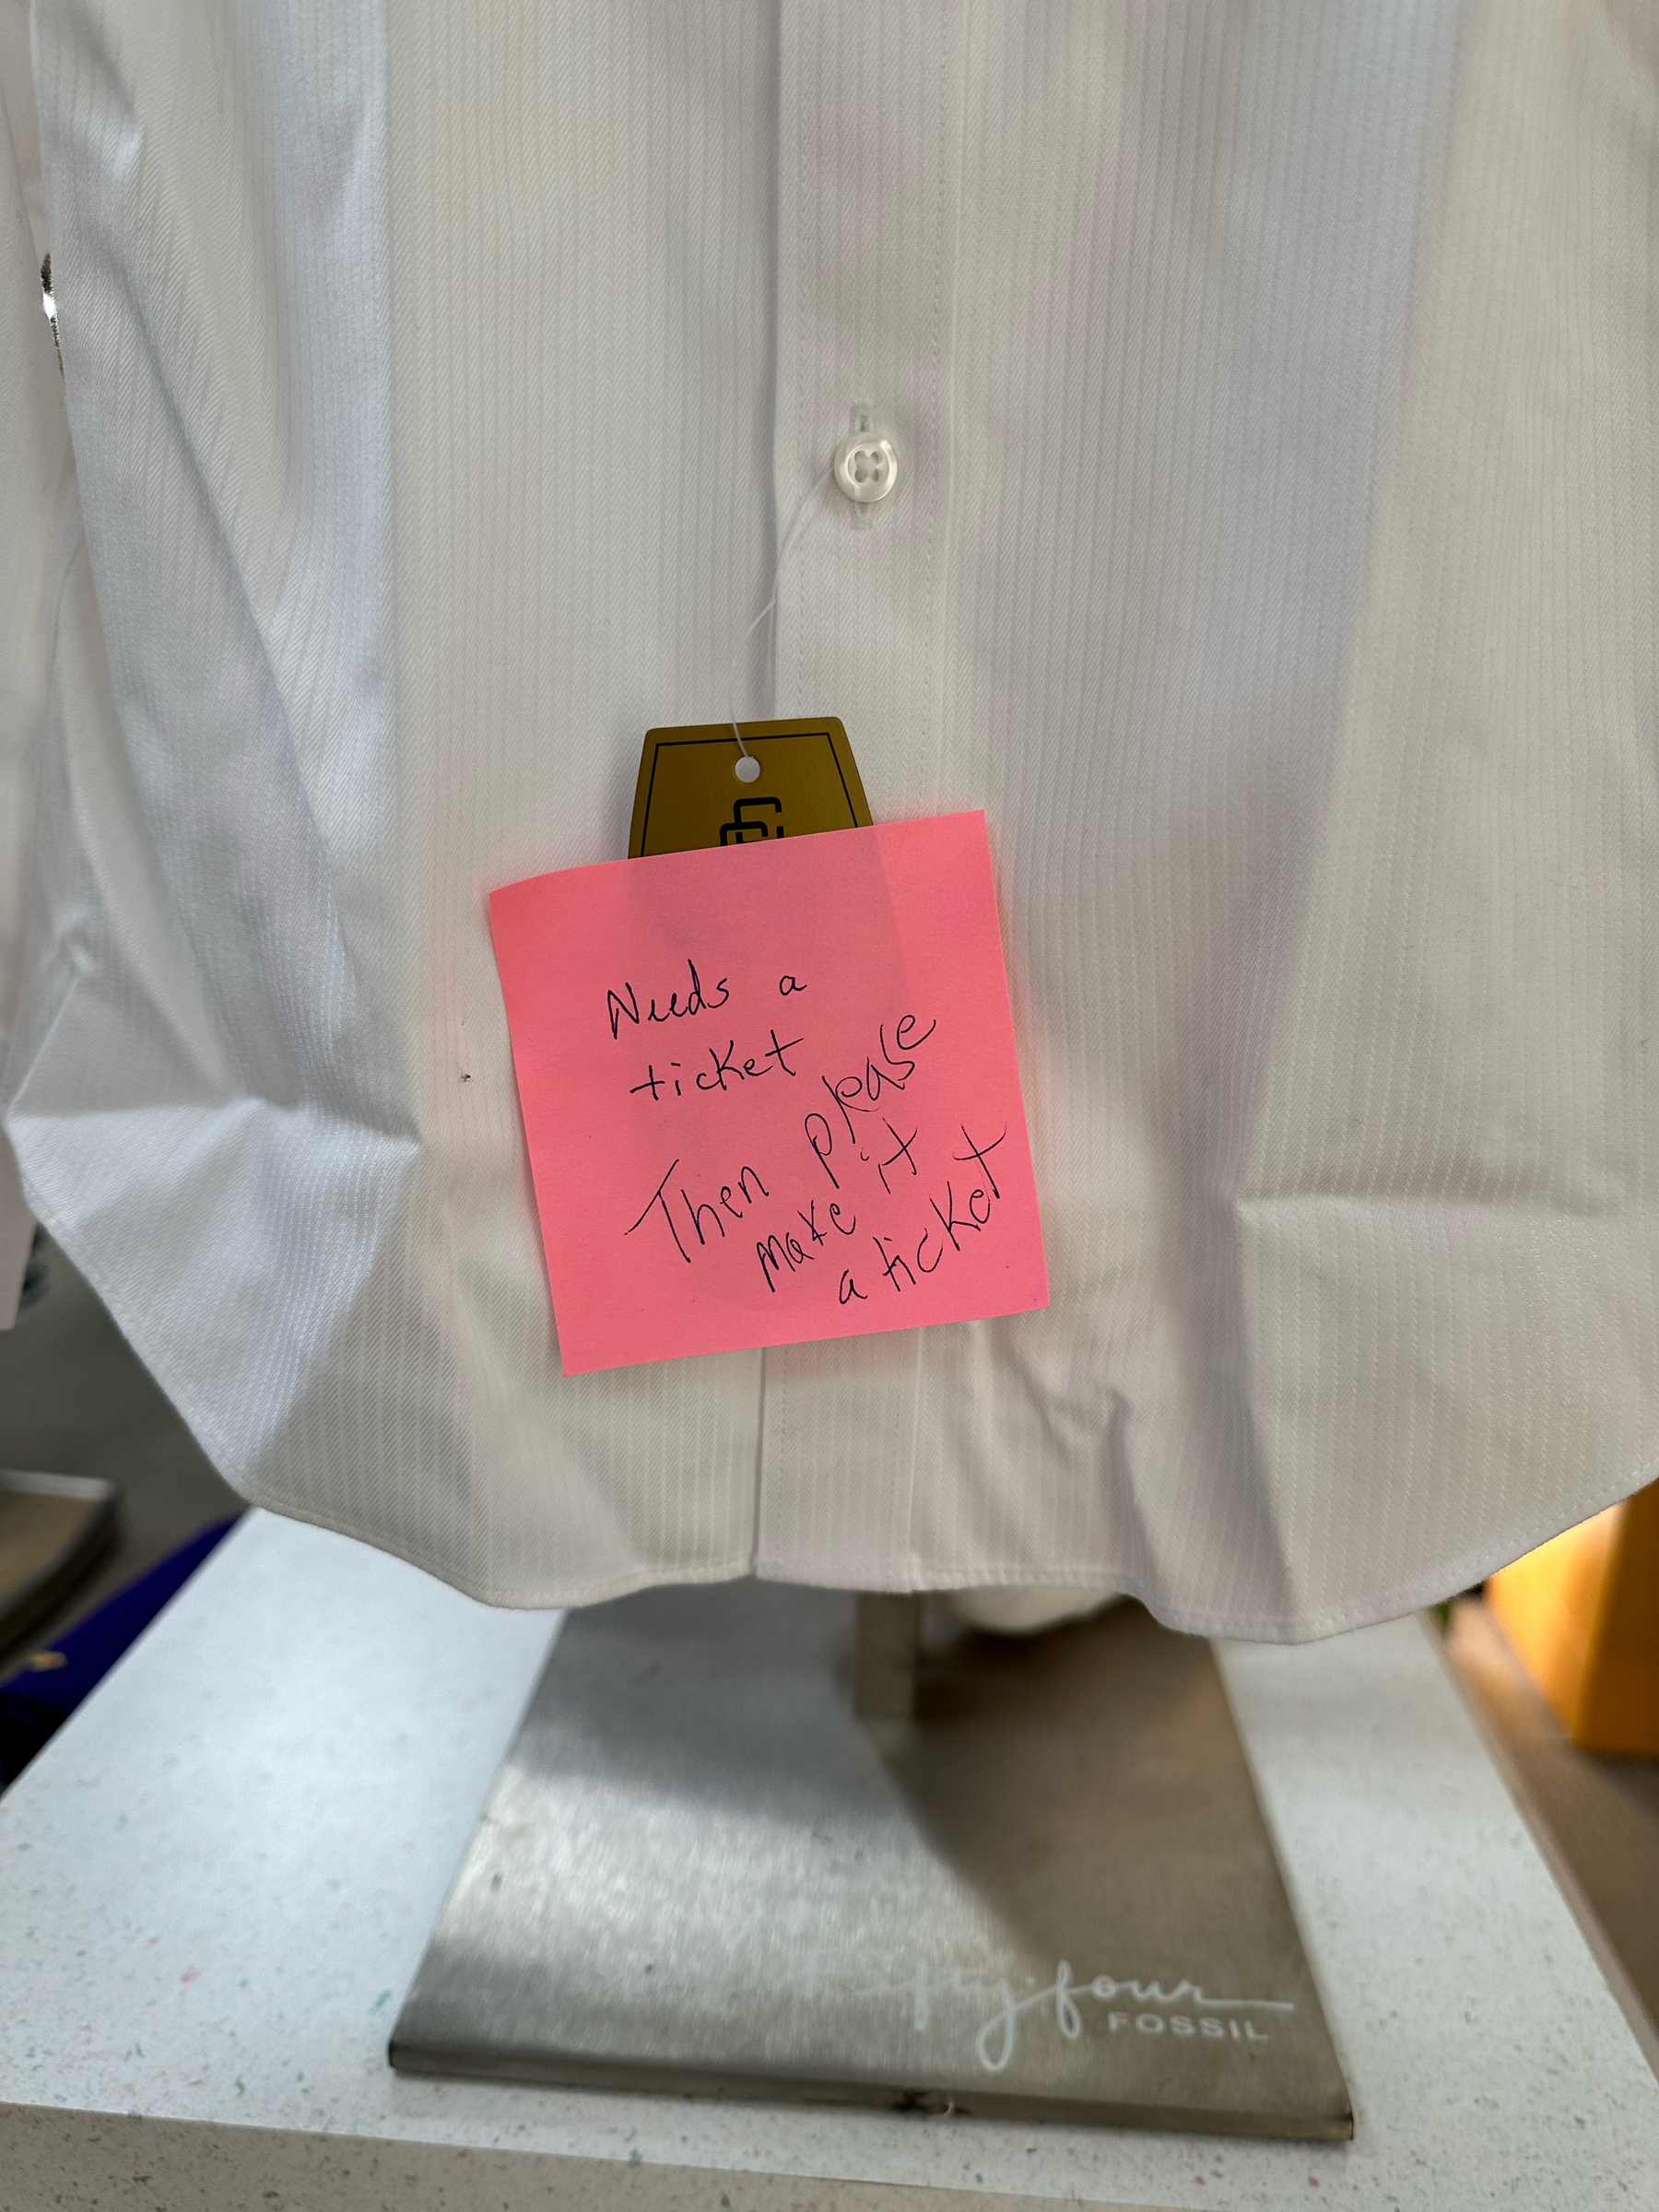 Needs a
ticket
Then please
make it
a ticket
fifty·four
FOSSIL